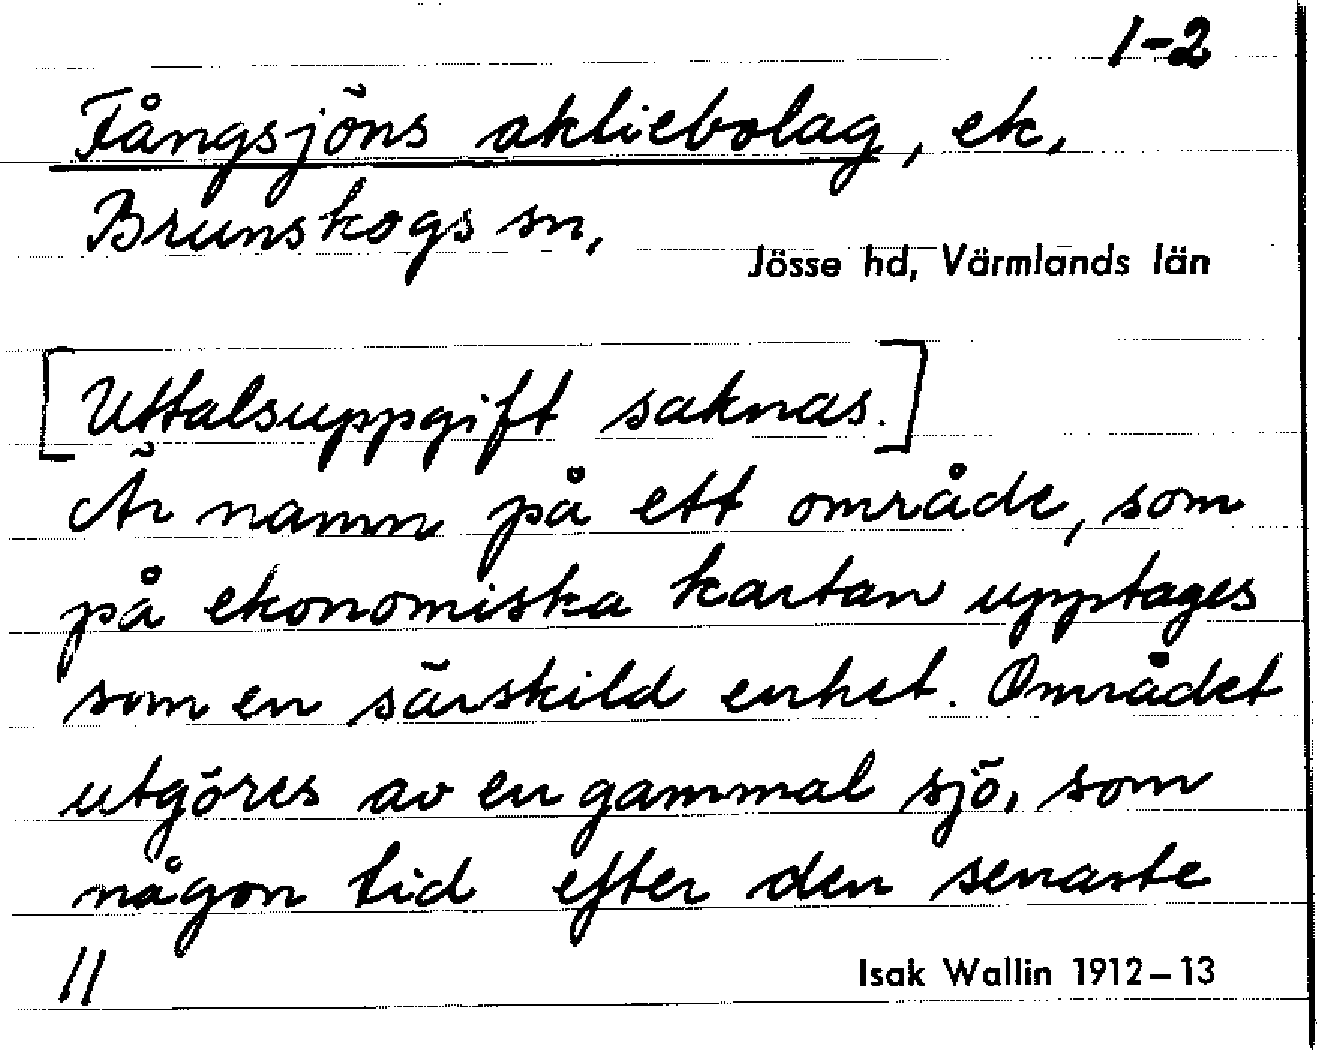 1-2
Fångsjöns aktiebolag, ek,
Brunskogs sn,
Jösse hd, Värmlands län
[Uttalsuppgift saknas.]
Är namn på ett område, som
på ekonomiska kartan upptages
som en särskild enhet. Området
utgöres av en gammal sjö, som
någon tid efter den senaste
//
Isak Wallin 1912-13